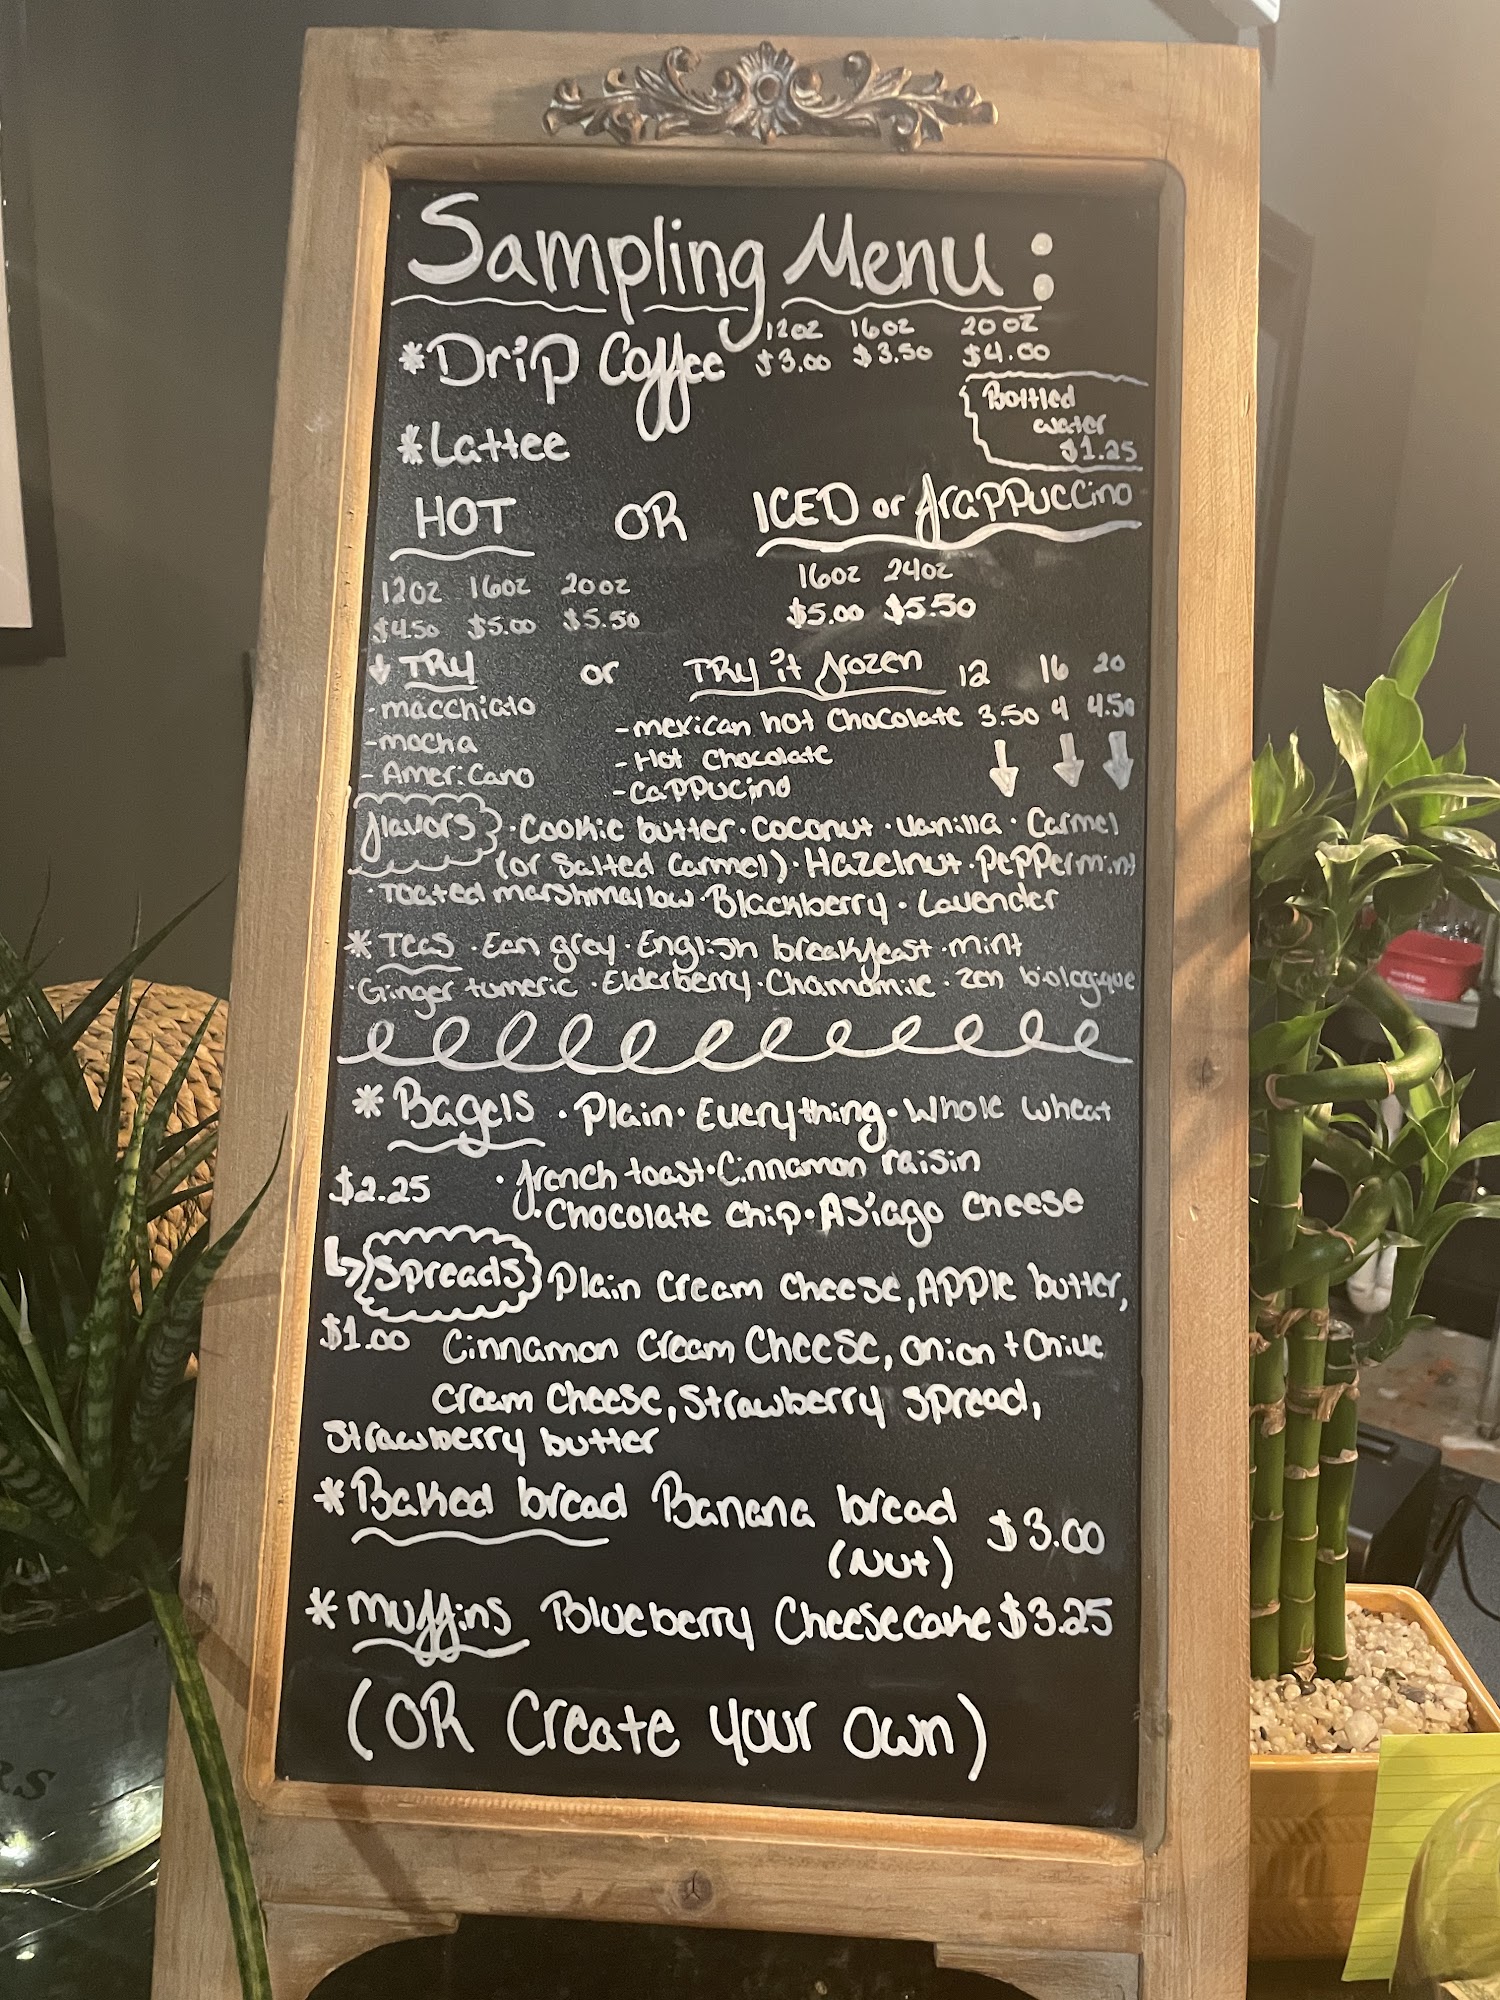 Sampling Menu :
12oz 16oz 20oz
*Drip Coffee $3.00 $3.50 $4.00
Bottled
water
$1.25
*Lattee
HOT OR ICED or frappuccino
12oz 16oz 20oz 16oz 24oz
$4.50 $5.00 $5.50 $5.00 $5.50
↓ TRY or TRY it frozen 12 16 20
-macchiato -mexican hot Chocolate 3.50 4 4.50
-mocha -Hot Chocolate
-Americano -cappucino
flavors · Cookie butter · coconut · vanilla · Carmel
(or Salted Carmel) · Hazelnut · Peppermint
· Toasted marshmallow · Blackberry · Lavender
* Teas · Earl grey · English breakfast · mint
· Ginger tumeric · Elderberry · Chamomile · zen biologique
* Bagels · Plain · Everything · Whole wheat
$2.25 · french toast · Cinnamon raisin
· Chocolate chip · Asiago cheese
Spreads Plain cream cheese, Apple butter,
$1.00 Cinnamon Cream Cheese, onion + chive
cream cheese, Strawberry spread,
Strawberry butter
* Baked bread Banana bread $3.00
(Nut)
* muffins Blueberry Cheesecake $3.25
(OR Create your own)
RS